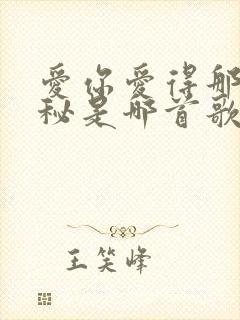 爱你爱得那
秘是那首歌
王笑峰